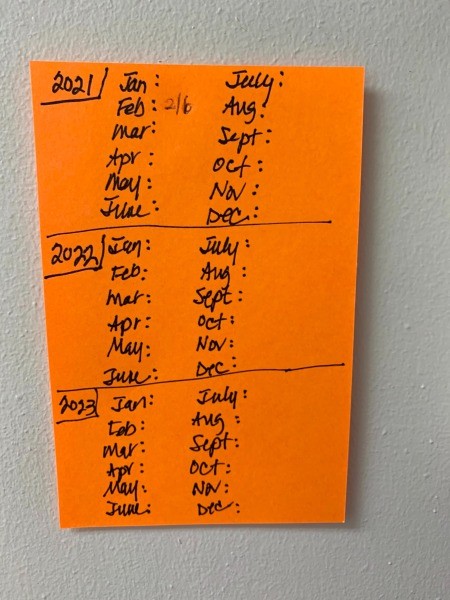 2021 Jan: July:
Feb: 2/6 Aug:
Mar: Sept:
Apr: Oct:
May: Nov:
June: Dec:
2022 Jan: July:
Feb: Aug:
Mar: Sept:
Apr: Oct:
May: Nov:
June: Dec:
2023 Jan: July:
Feb: Aug:
Mar: Sept:
Apr: Oct:
May: Nov:
June: Dec: